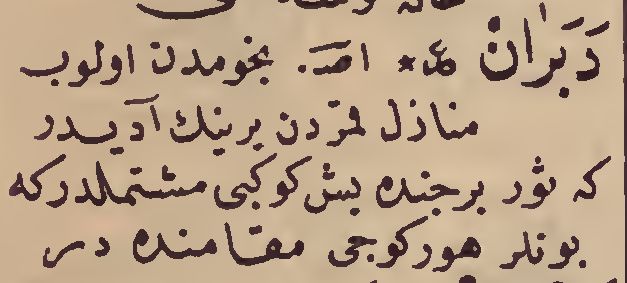 دَبَرَانْ ع * اخ. نجومدن اولوب
منازل قمردن برينك آديدر
كه ثور برجنده بش كوكبى مشتملدر كه
بونلر هوركوجى مقامنده در